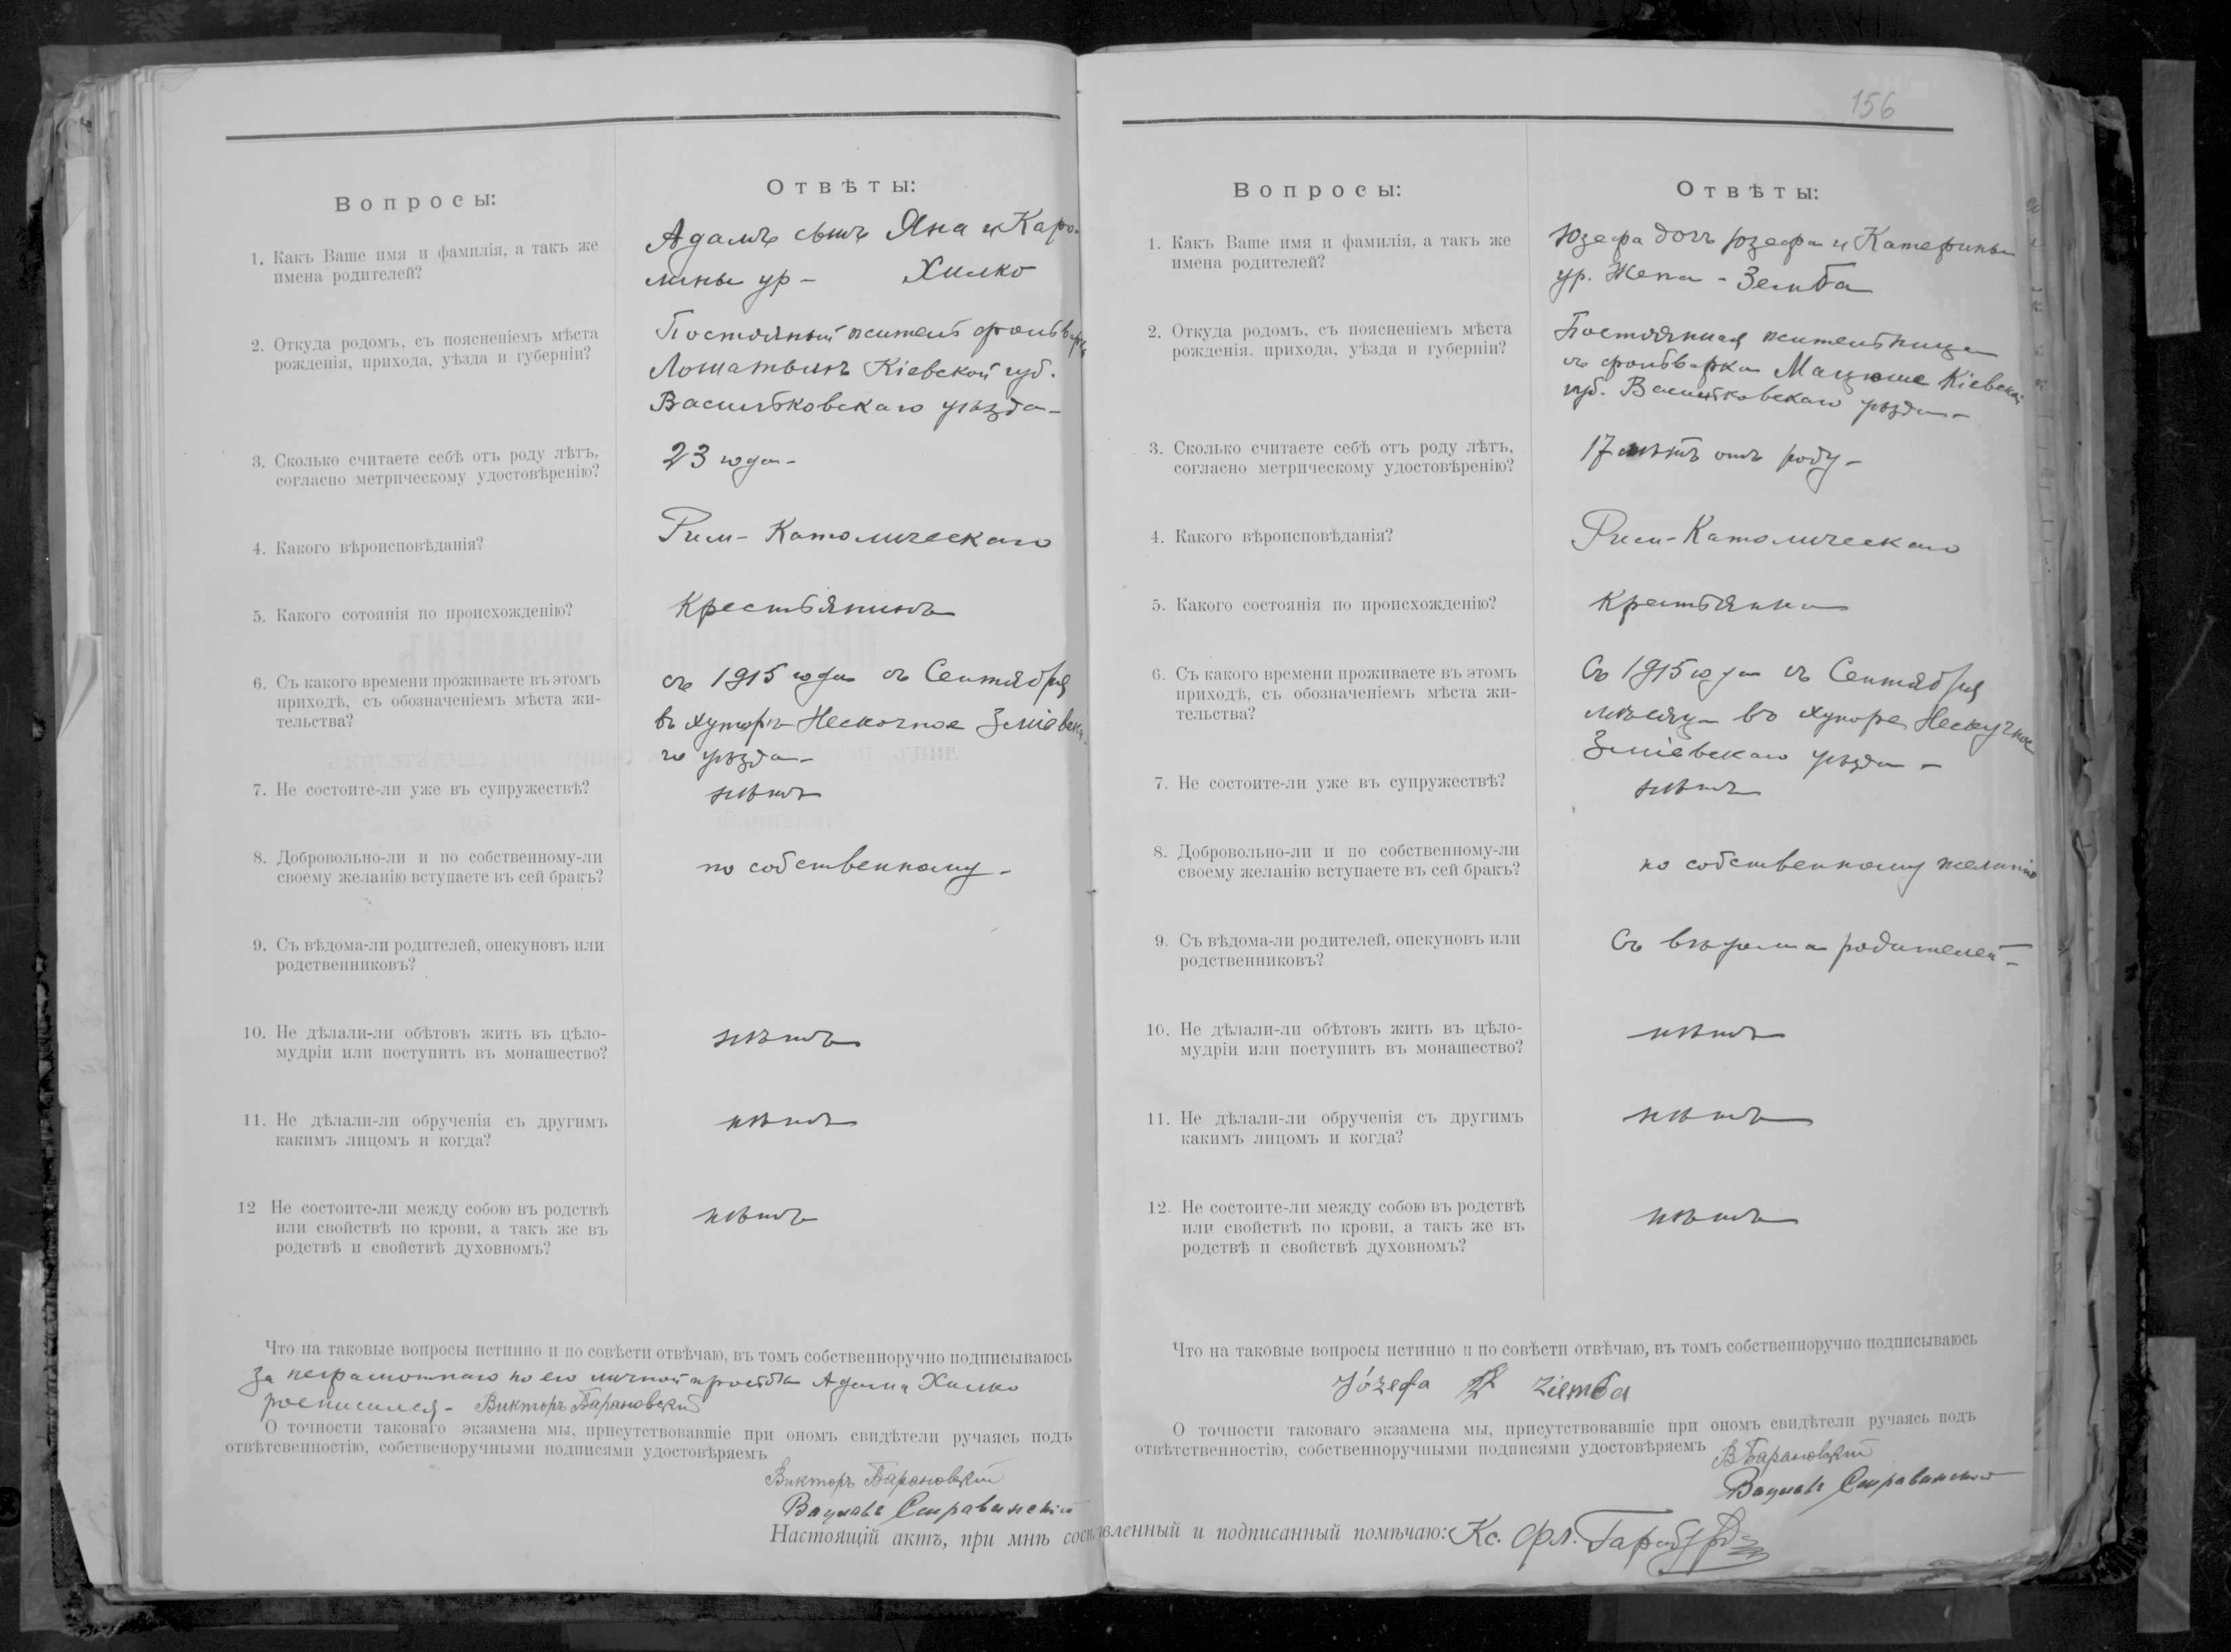 Вопросы:
Отвѣты:
1. Какъ Ваше имя и фамилія, а такъ же
имена родителей?
Адамъ сынъ Яна и Каро-
лины ур – Хилко
2. Откуда родомъ, съ поясненіемъ мѣста
рожденія, прихода, уѣзда и губерніи?
Постоянный житель фольварка
Кіевской губ.
Васильковскаго уѣзда –
3. Сколько считаете себѣ отъ роду лѣтъ,
согласно метрическому удостовѣренію?
23 года –
4. Какого вѣроисповѣданія?
Рим – Католическаго
5. Какого сотоянія по происхожденію?
Крестьянинъ
6. Съ какого времени проживаете въ этомъ
приходѣ, съ обозначеніемъ мѣста жи-
тельства?
съ 1915 года съ Сентября
въ хуторѣ Нескочное Зміевска-
го уѣзда –
7. Не состоите-ли уже въ супружествѣ?
нѣтъ
8. Добровольно-ли и по собственному-ли
своему желанію вступаете въ сей бракъ?
по собственному –
9. Съ вѣдома-ли родителей, опекуновъ или
родственниковъ?
10. Не дѣлали-ли обѣтовъ жить въ цѣло-
мудріи или поступить въ монашество?
нѣтъ
11. Не дѣлали-ли обрученія съ другимъ
какимъ лицомъ и когда?
нѣтъ
12 Не состоите-ли между собою въ родствѣ
или свойствѣ по крови, а такъ же въ
родствѣ и свойствѣ духовномъ?
нѣтъ
Что на таковые вопросы истинно и по совѣсти отвѣчаю, въ томъ собственноручно подписываюсь
За неграмотнаго по его личной просьбѣ Адама Хилко
росписался – Викторъ Барановскій
О точности таковаго экзамена мы, присутствовавшіе при ономъ свидѣтели ручаясь подъ
отвѣтсвенностію, собственоручными подписями удостовѣряемъ
Викторъ Барановскій
Вацлавъ
156
Вопросы:
Отвѣты:
1. Какъ Ваше имя и фамилія, а такъ же
имена родителей?
Юзефа дочь Юзефа и Катерины
ур. – Земба
2. Откуда родомъ, съ поясненіемъ мѣста
рожденія. прихода, уѣзда и губерніи?
Постоянная жительница
съ фольварка Кіевской
губ. Васильковскаго уѣзда –
3. Сколько считаете себѣ отъ роду лѣтъ,
согласно метрическому удостовѣренію?
17 лѣтъ отъ роду –
4. Какого вѣроисповѣданія?
Рим – Католическаго
5. Какого состоянія по происхожденію?
Крестьянка
6. Съ какого времени проживаете въ этомъ
приходѣ, съ обозначеніемъ мѣста жи-
тельства?
Съ 1915 года съ Сентября
мѣсяца въ хуторе Нескучное
Зміевскаго уѣзда –
7. Не состоите-ли уже въ супружествѣ?
нѣтъ
8. Добровольно-ли и по собственному-ли
своему желанію вступаете въ сей бракъ?
по собственному желанію
9. Съ вѣдома-ли родителей, опекуновъ или
родственниковъ?
Съ вѣдома родителей –
10. Не дѣлали-ли обѣтовъ жить въ цѣло-
мудріи или поступить въ монашество?
нѣтъ
11. Не дѣлали-ли обрученія съ другимъ
какимъ лицомъ и когда?
нѣтъ
12. Не состоите-ли между собою въ родствѣ
или свойствѣ по крови, а такъ же въ
родствѣ и свойствѣ духовномъ?
нѣтъ
Что на таковые вопросы истинно и по совѣсти отвѣчаю, въ томъ собственноручно подписываюсь
Józefa Ziemba
О точности таковаго экзамена мы, присутствовавшіе при ономъ свидѣтели ручаясь подъ
отвѣтственностію, собственноручными подписями удостовѣряемъ
В Барановскій
Вацлавъ
Настоящій актъ, при мнѣ составленный и подписанный помѣчаю: Кс. Фл.